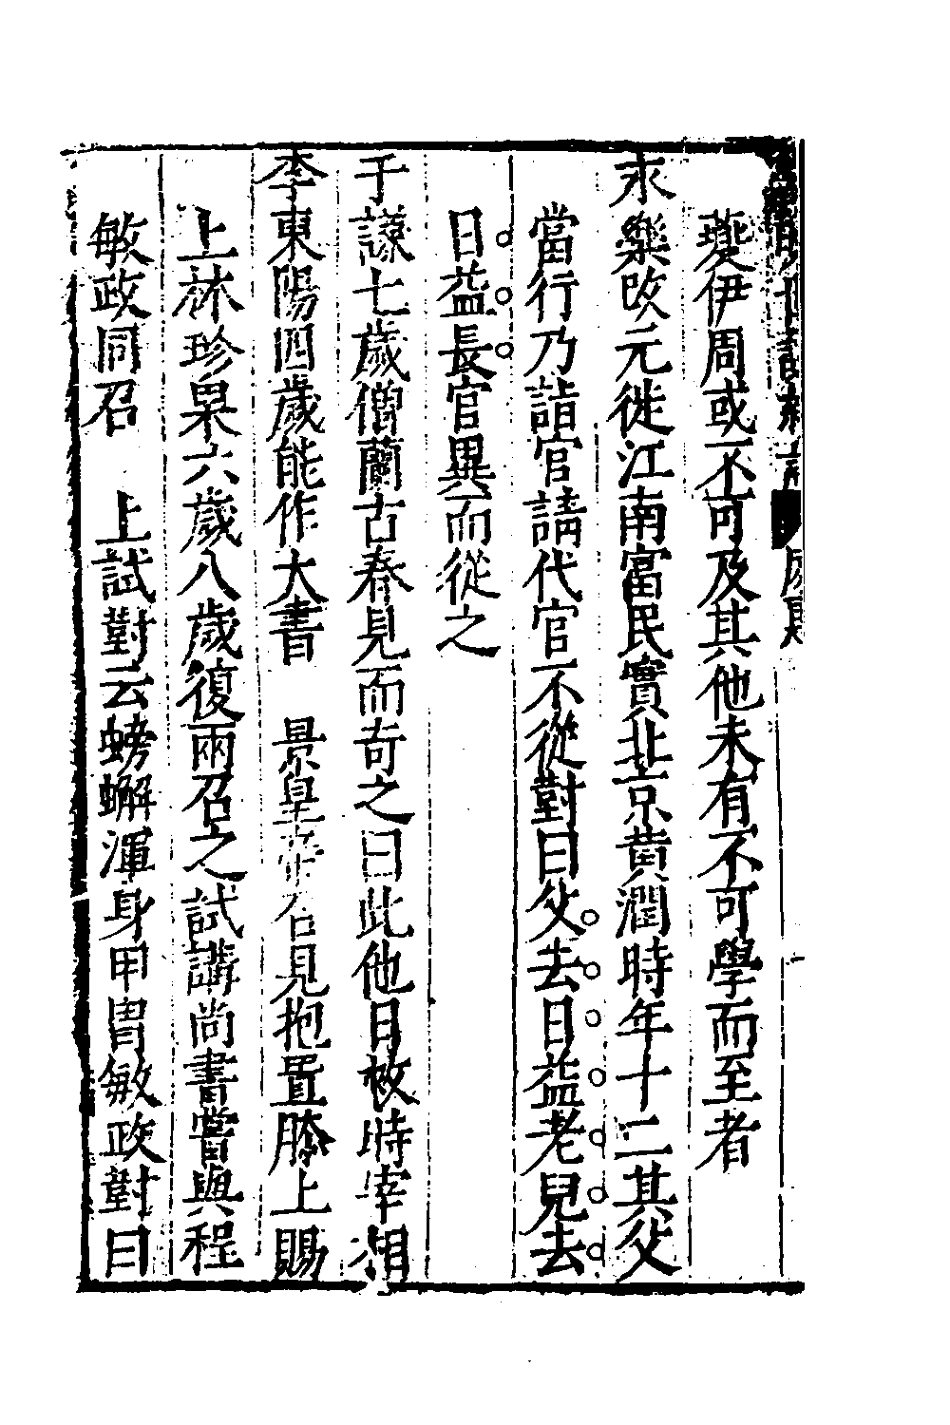 夔伊周或不可及其他未有不可學而至者
永樂改元徙江南富民實北京黄潤時年十二其父
當行乃詣官請代官不從對曰父去日益老兒去
日益長官異而從之
于謙七歲僧蘭古春見而奇之曰此他日救時宰相
李東陽四歲能作大書 景皇帝召見抱置膝上賜
上林珍果六歲八歲復兩召之試講尚書嘗與程
敏政同召 上試對云螃蠏渾身甲冑敏政對曰